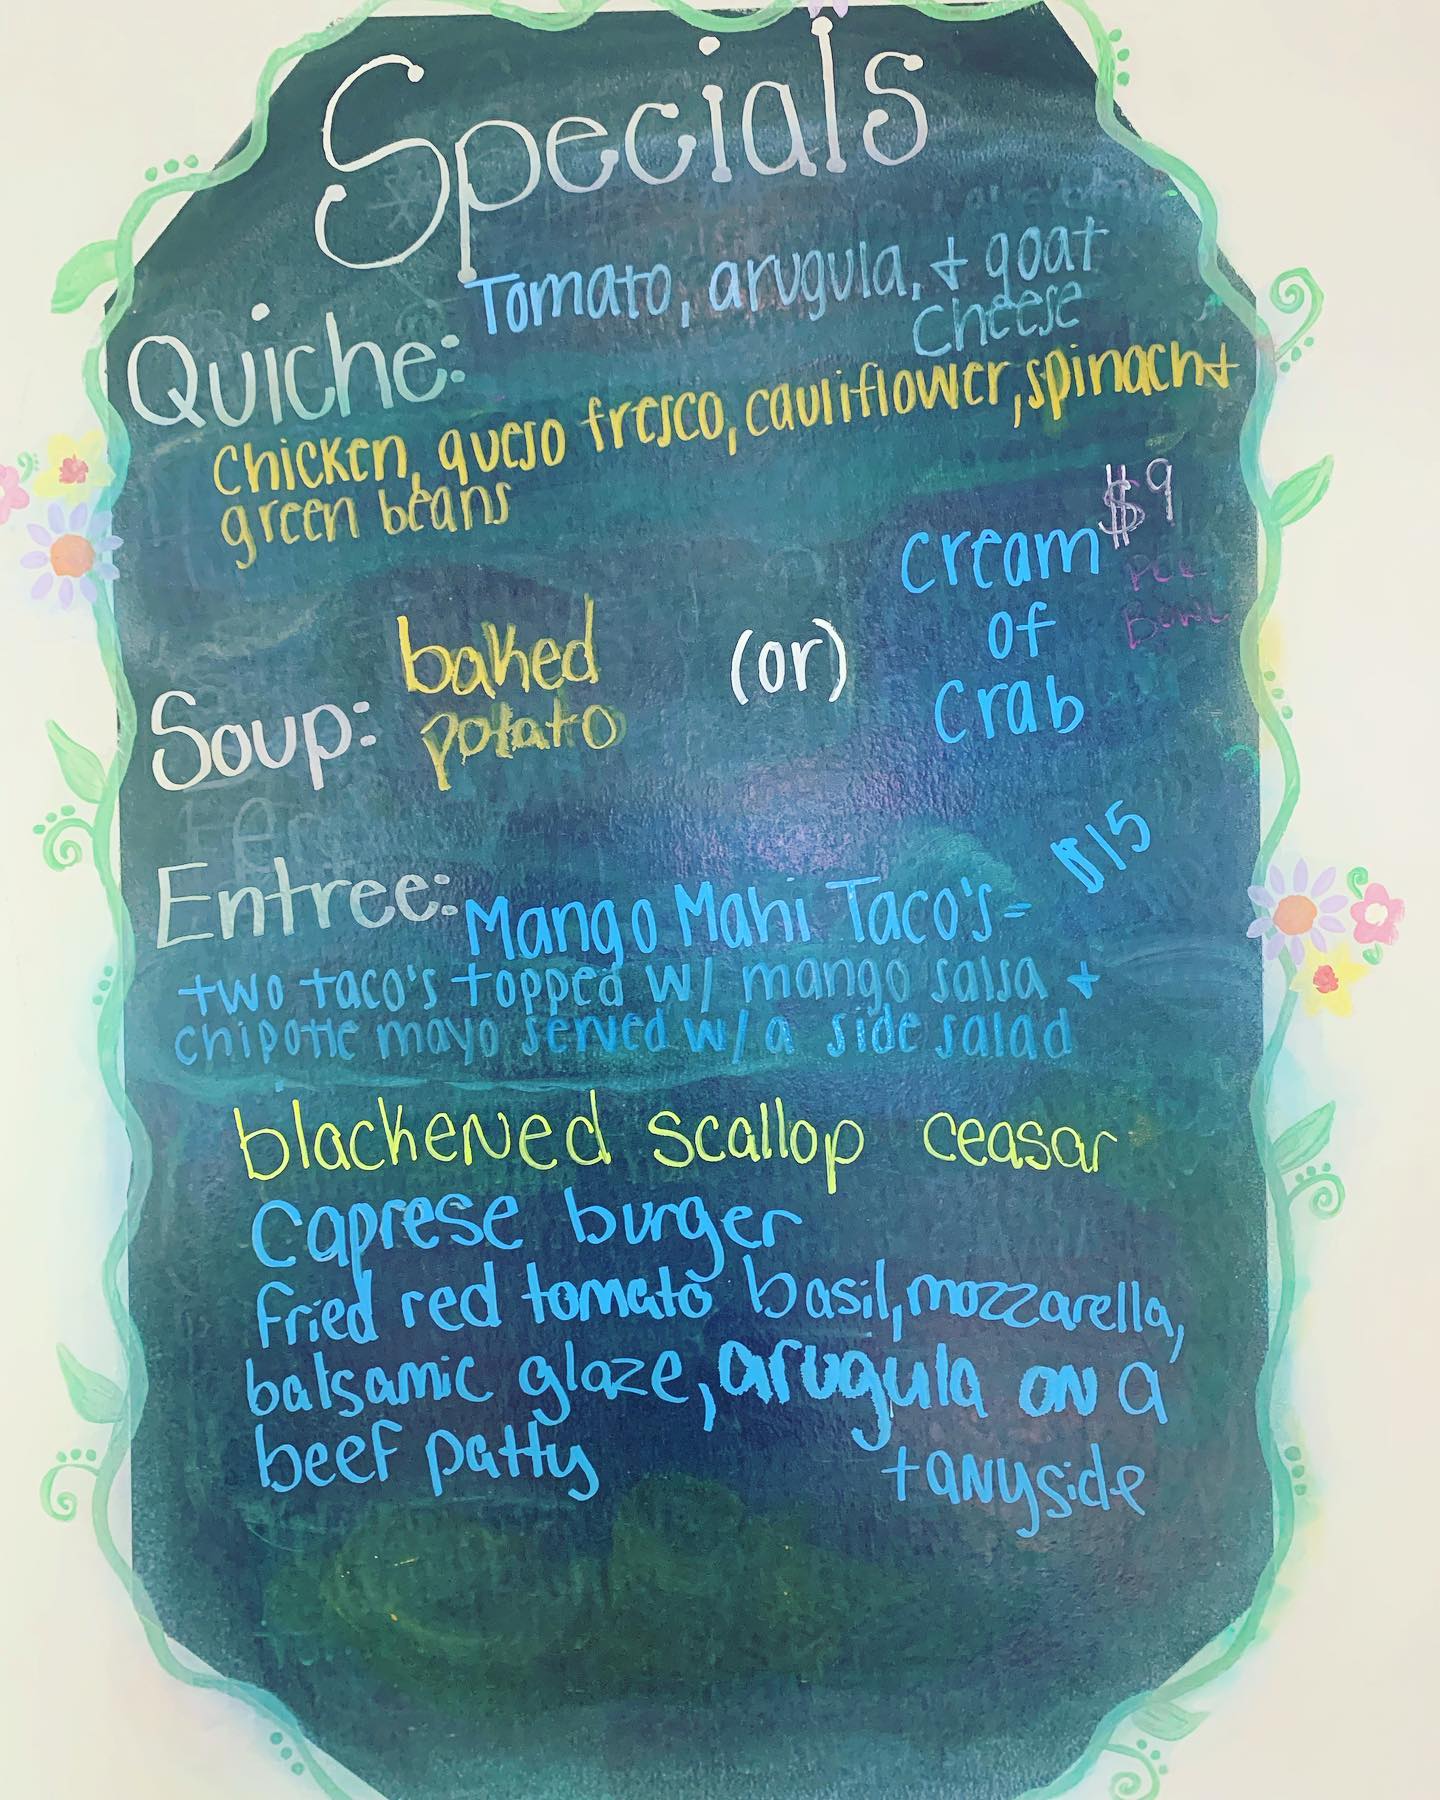 Specials
Quiche: Tomato, arugula, + goat
cheese
Chicken, queso fresco, cauliflower, spinach +
green beans
$9
per
Bowl
Soup: baked
potato
(or)
cream
of
crab
$15
Entree: Mango Mahi Taco's-
two taco's topped w/ mango salsa +
chipotle mayo served w/ a side salad
blackened scallop ceasar
Caprese burger
Fried red tomato basil, mozzarella,
balsamic glaze, arugula on a
beef patty + any side